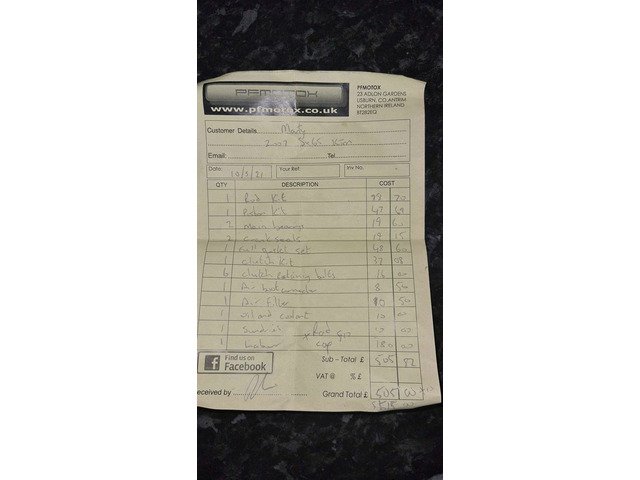 PFMOTOX
www.pfmotox.co.uk
PFMOTOX
23 ADLON GARDENS
LISBURN, CO.ANTRIM
NORTHERN IRELAND
BT282EQ
Customer Details
2007
Email: Tel
Date: 10/5/21 Your Ref. Inv No.
QTY DESCRIPTION COST
1 Rod Kit 98 70
1 Piston Kit 47 49
2 Main bearings 19 60
2 Crank seals 19 15
1 Full gasket set 48 60
1 Clutch Kit 37 08
6 Clutch retaining bolts 16 00
1 Air boot connector 8 50
1 Air filter 10 50
1 oil and coolant 10 00
1 Sundries 10 00
1 Labour 180 00
x Rad cap £10
Find us on
Facebook
Sub - Total £ 505 82
VAT @ % £
Received by
Grand Total £ 505 00
515 00